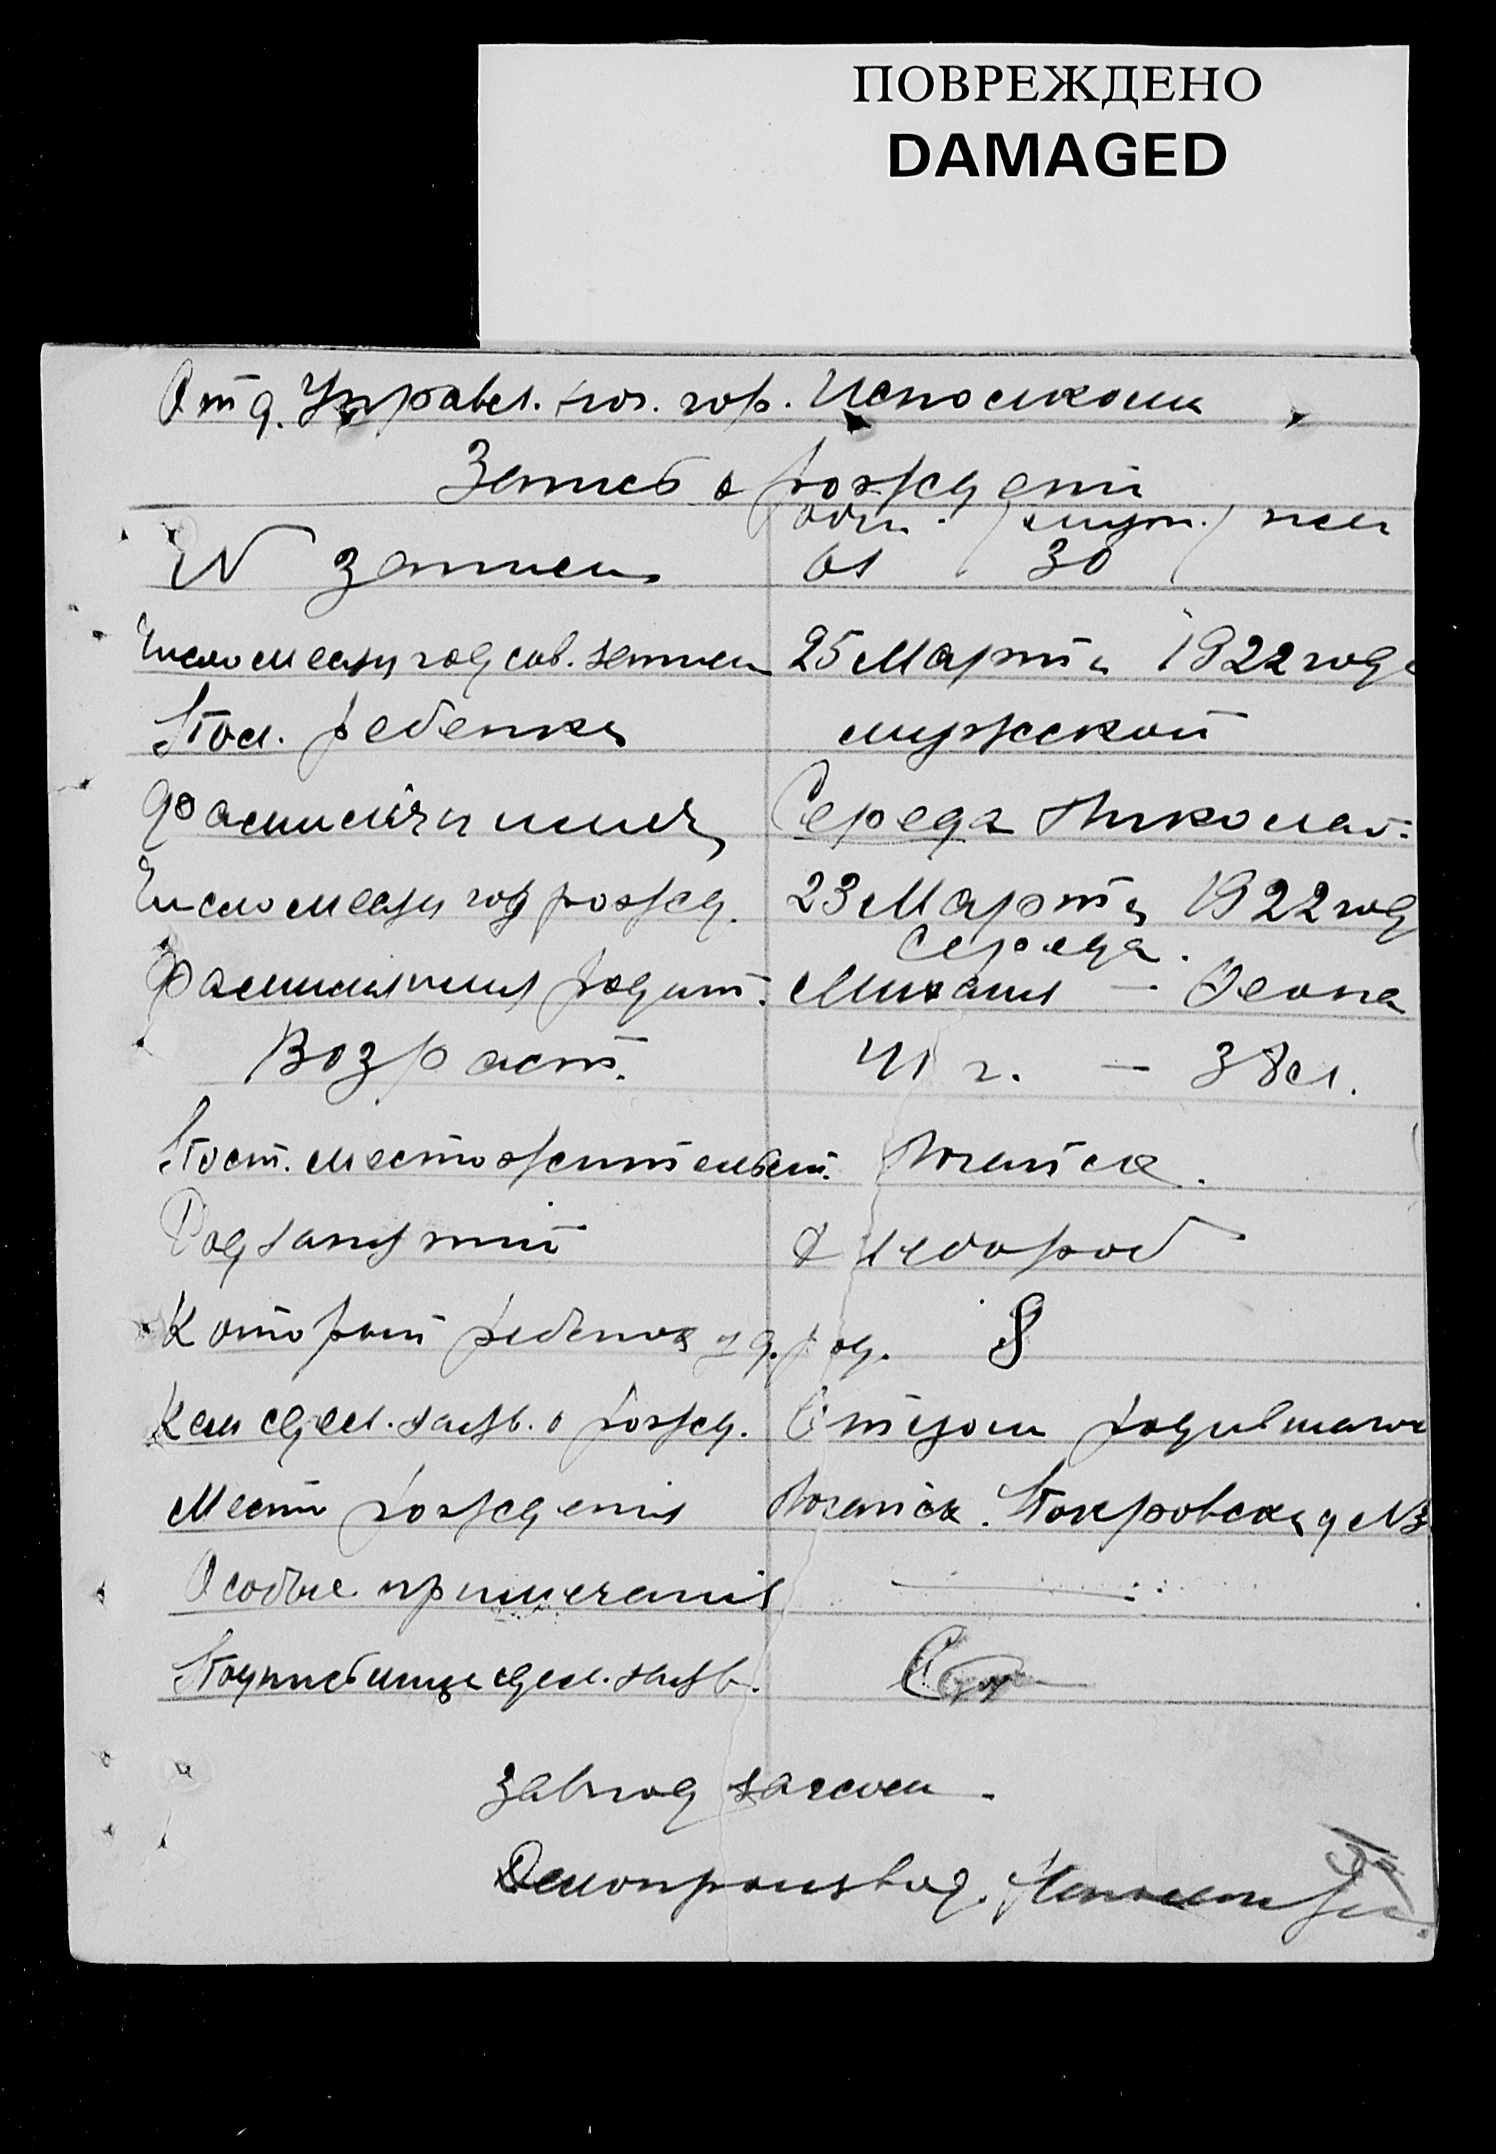 ПОВРЕЖДЕНО
DAMAGED
Отд. Управл. ног. гор. Исполкома
Запись о рождении
общ. / мужч. / жен
N записи 61 30
Число месяц год сов. записи 25 Марта 1922 года
Пол. ребенка мужской
Фамилия и имя Середа Николай.
Число месяц год рожд. 23 Марта 1922 год
Середа.
Фамилия имя родит. Михаил — Феона
Возраст. 41 г. — 38 л.
Пост. местожительст. Ногайск.
Род занятий Хлебороб
Который ребенок у д. род. 8
Кем сдел. заяв. о рожд. Отцом родившаго
Место рождения Ногайск. Покровская N3
Особые примечания —
Подпись лица сдел. заяв.
Завпод загсом.
Делопроизвод.